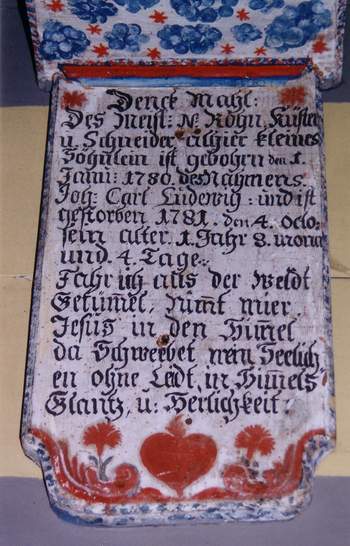 Denck Mahl:
Des Meist: N: Röhn, Küster
u Schneider alhier kleines
Söhnlein ist gebohrn den 1.
Janu: 1780. des Nahmens.
Joh: Carl Ludewig: und ist
gestorben 1781. den 4. Octo.
sein alter. 1. Jahr 8. mona
und. 4. Tage.
Fahr ich aus der Weldt
Getümel, nimt mier
Jesus in den Himel
da Schweebet mein Seelich
en ohne Leidt, in Himels
Glantz, u: Herlichkeit.